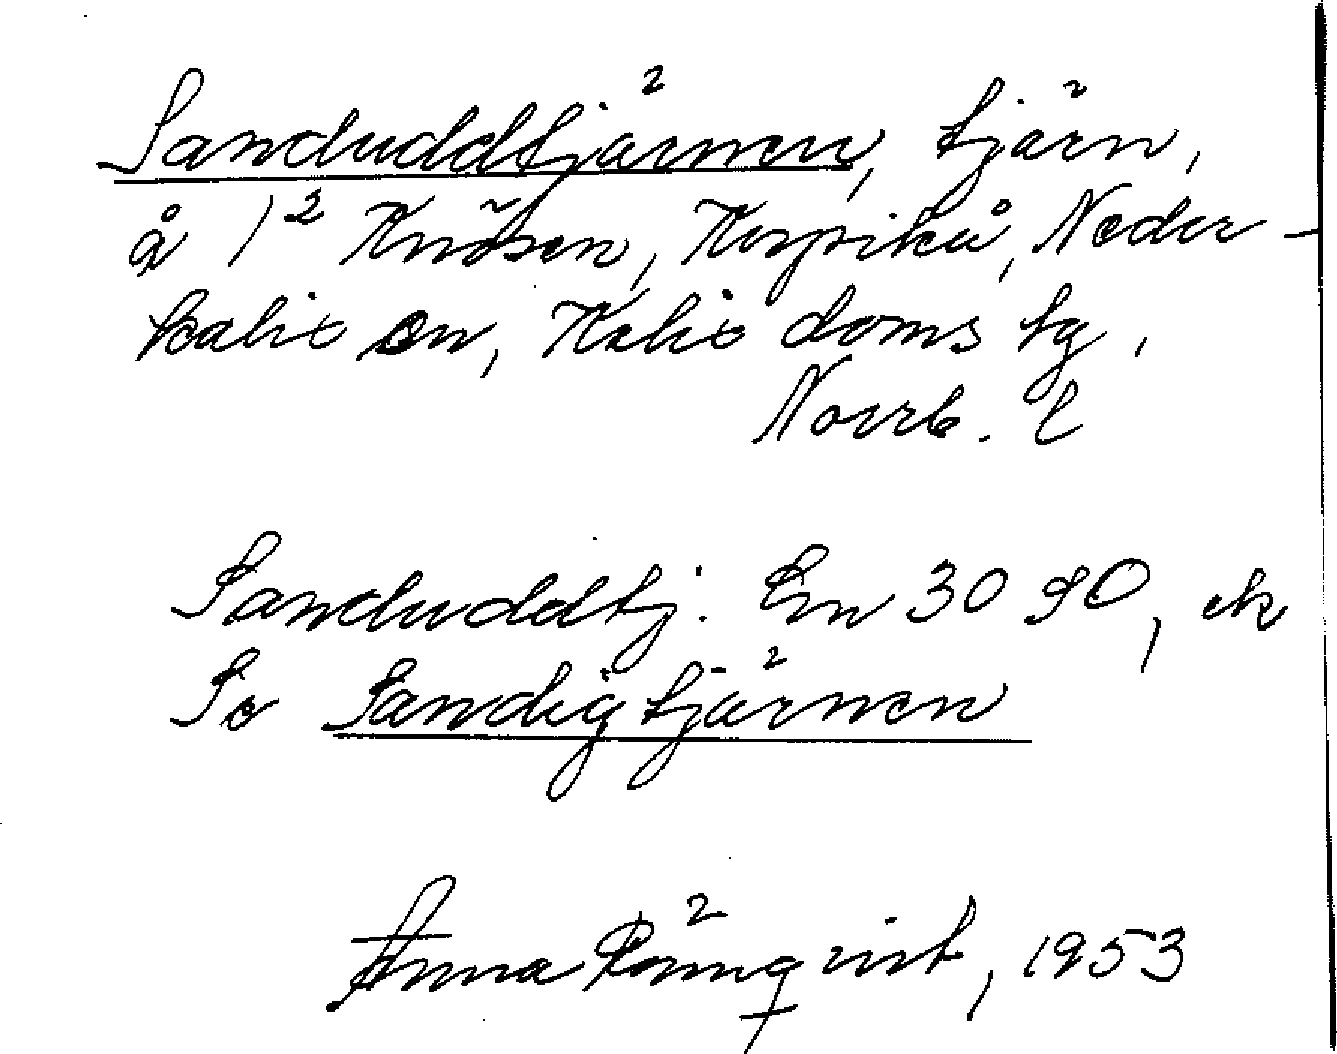 Sanduddtjärnen, tjärn,
å 1² Knösen, Korpikå, Neder-
kalix sn, Kalix doms lg,
Norrb. l
Sanduddtj. En 30 90, ek
Se Sandigtjärnen
Anna Rönnqvist, 1953